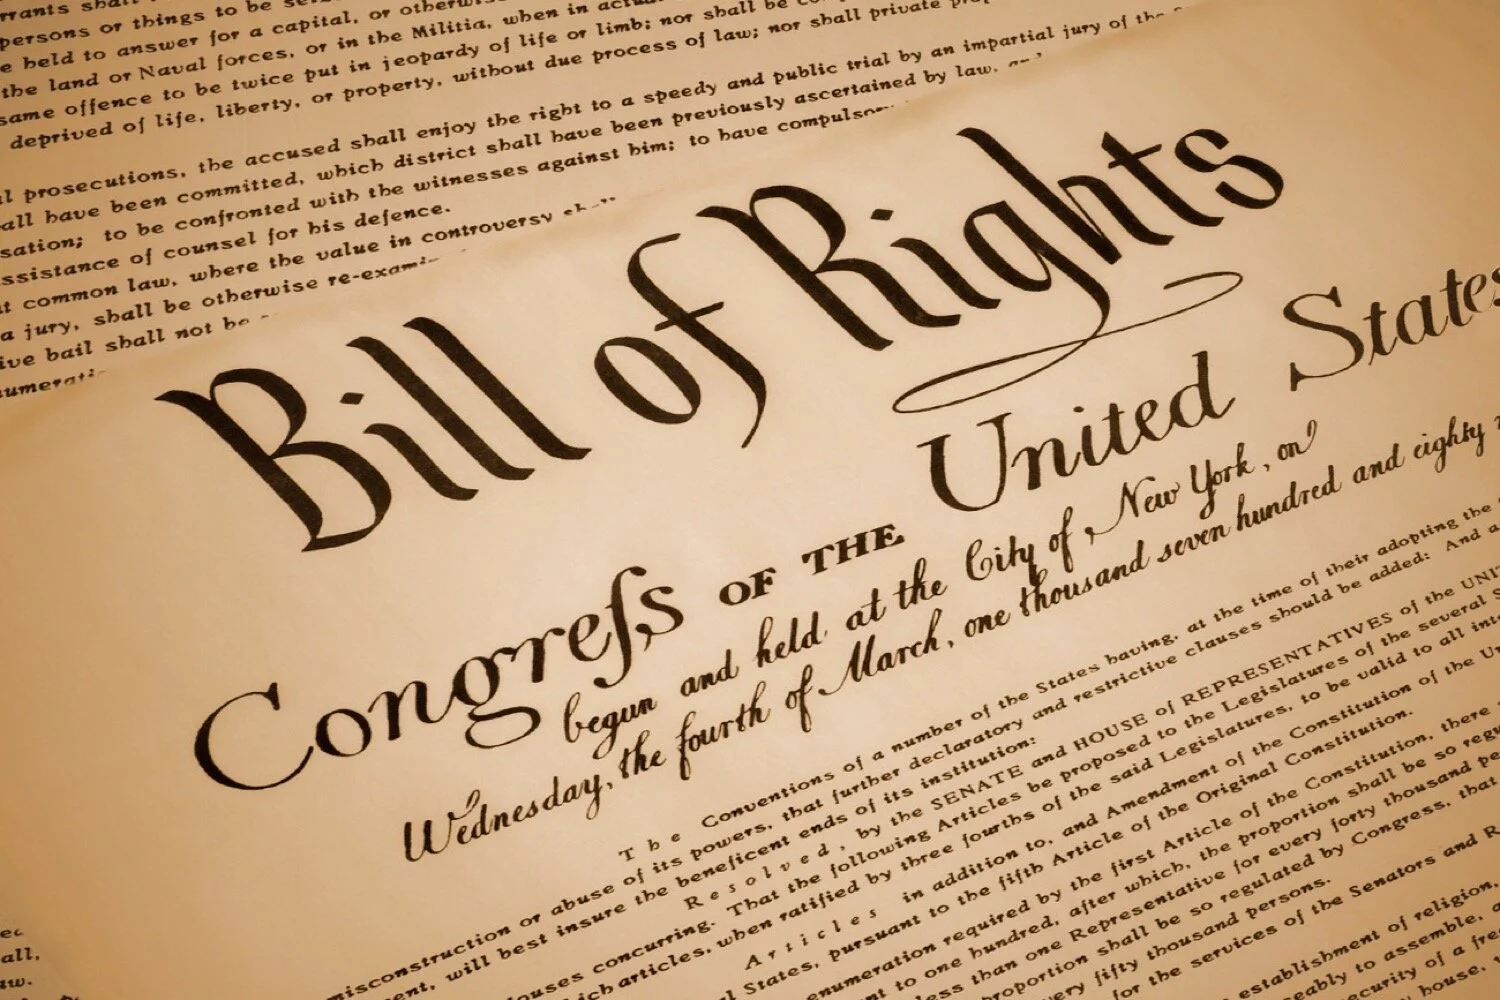 rrants shall
persons or things to be
e held to answer for a capital, or otherwis
the land or Naval forces, or in the Militia, when in actua
same offence to be twice put in jeopardy of life or limb; nor shall be
deprived of life, liberty, or property, without due process of law; nor shall private prop
l prosecutions, the accused shall enjoy the right to a speedy and public trial by an impartial jury of the
all have been committed, which district shall have been previously ascertained by law, and
sation; to be confronted with the witnesses against him; to have compulsor
ssistance of counsel for his defence.
t common law, where the value in controversy
a jury, shall be otherwise re-exami
ive bail shall not be
numerati
Bill of Rights
Congreſs OF THE United States
begun and held at the City of New York, on
Wednesday, the fourth of March, one thousand seven hundred and eighty
The Conventions of a number of the States having, at the time of their adopting the
misconstruction or abuse of its powers, that further declaratory and restrictive clauses should be added: And a
ent, will best insure the beneficent ends of its institution:
Resolved, by the SENATE and HOUSE of REPRESENTATIVES of the UNIT
ouses concurring. That the following Articles be proposed to the Legislatures of the several S
ich articles, when ratified by three fourths of the said Legislatures, to be valid to all inte
Articles in addition to, and Amendment of the Constitution of the Un
l States, pursuant to the fifth Article of the Original Constitution.
enumeration required by the first Article of the Constitution, there
nt to one hundred, after which, the proportion shall be so regu
less than one Representative for every forty thousand pe
proportion shall be so regulated by Congress, that
ery fifty thousand persons.
for the services of the Senators and R
establishment of religion,
eably to assemble,
ecurity of a fre
house,
all,
aw.